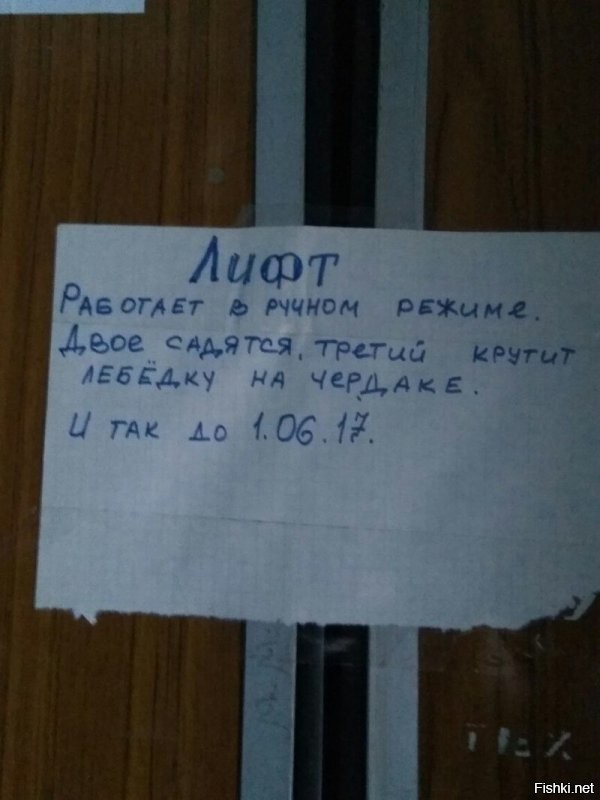 Лифт
Работает в ручном режиме.
Двое садятся, третий крутит
лебёдку на чердаке.
И так до 1.06.17.
Fishki.net